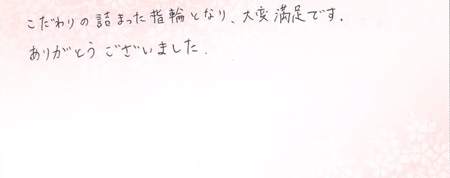 こだわりの詰まった指輪となり、大変満足です.
ありがとうございました.